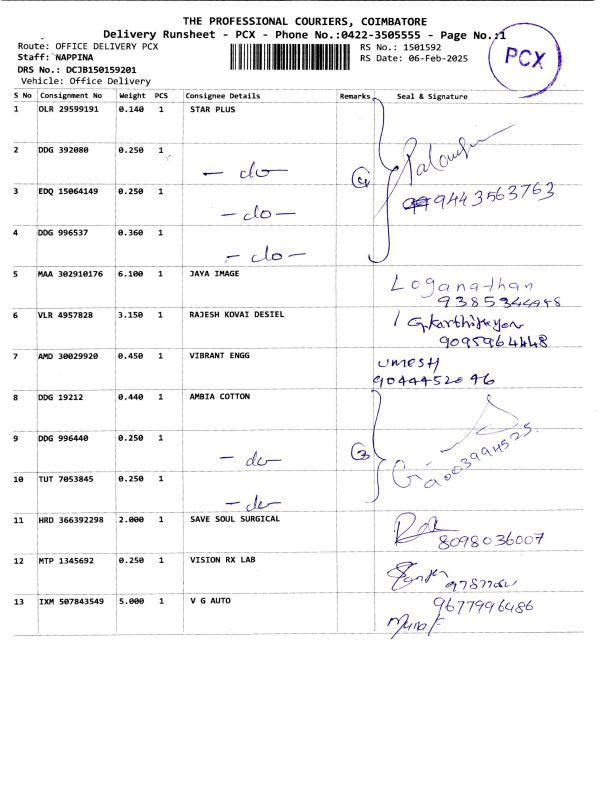 THE PROFESSIONAL COURIERS, COIMBATORE
Delivery Runsheet - PCX - Phone No.:0422-3505555 - Page No.:1
Route: OFFICE DELIVERY PCX
RS No.: 1501592
Staff: NAPPINA
RS Date: 06-Feb-2025
DRS No.: DCJB150159201
Vehicle: Office Delivery
PCX
S No Consignment No Weight PCS Consignee Details Remarks Seal & Signature
1 OLR 29599191 0.140 1 STAR PLUS
2 DDG 392080 0.250 1 - do -
3 EDQ 15064149 0.250 1 - do - 9443563763
4 DDG 996537 0.360 1 - do -
5 MAA 302910176 6.100 1 JAYA IMAGE Loganathan
6 VLR 4957828 3.150 1 RAJESH KOVAI DESIEL
9095964448
7 AMD 30029920 0.450 1 VIBRANT ENGG UMESH
9044452046
8 DDG 19212 0.440 1 AMBIA COTTON
9 DDG 996440 0.250 1 - do
10 TUT 7053845 0.250 1 - do
11 HRD 366392298 2.000 1 SAVE SOUL SURGICAL
8098036007
12 MTP 1345692 0.250 1 VISION RX LAB
13 IXM 507843549 5.000 1 V G AUTO 9677996486